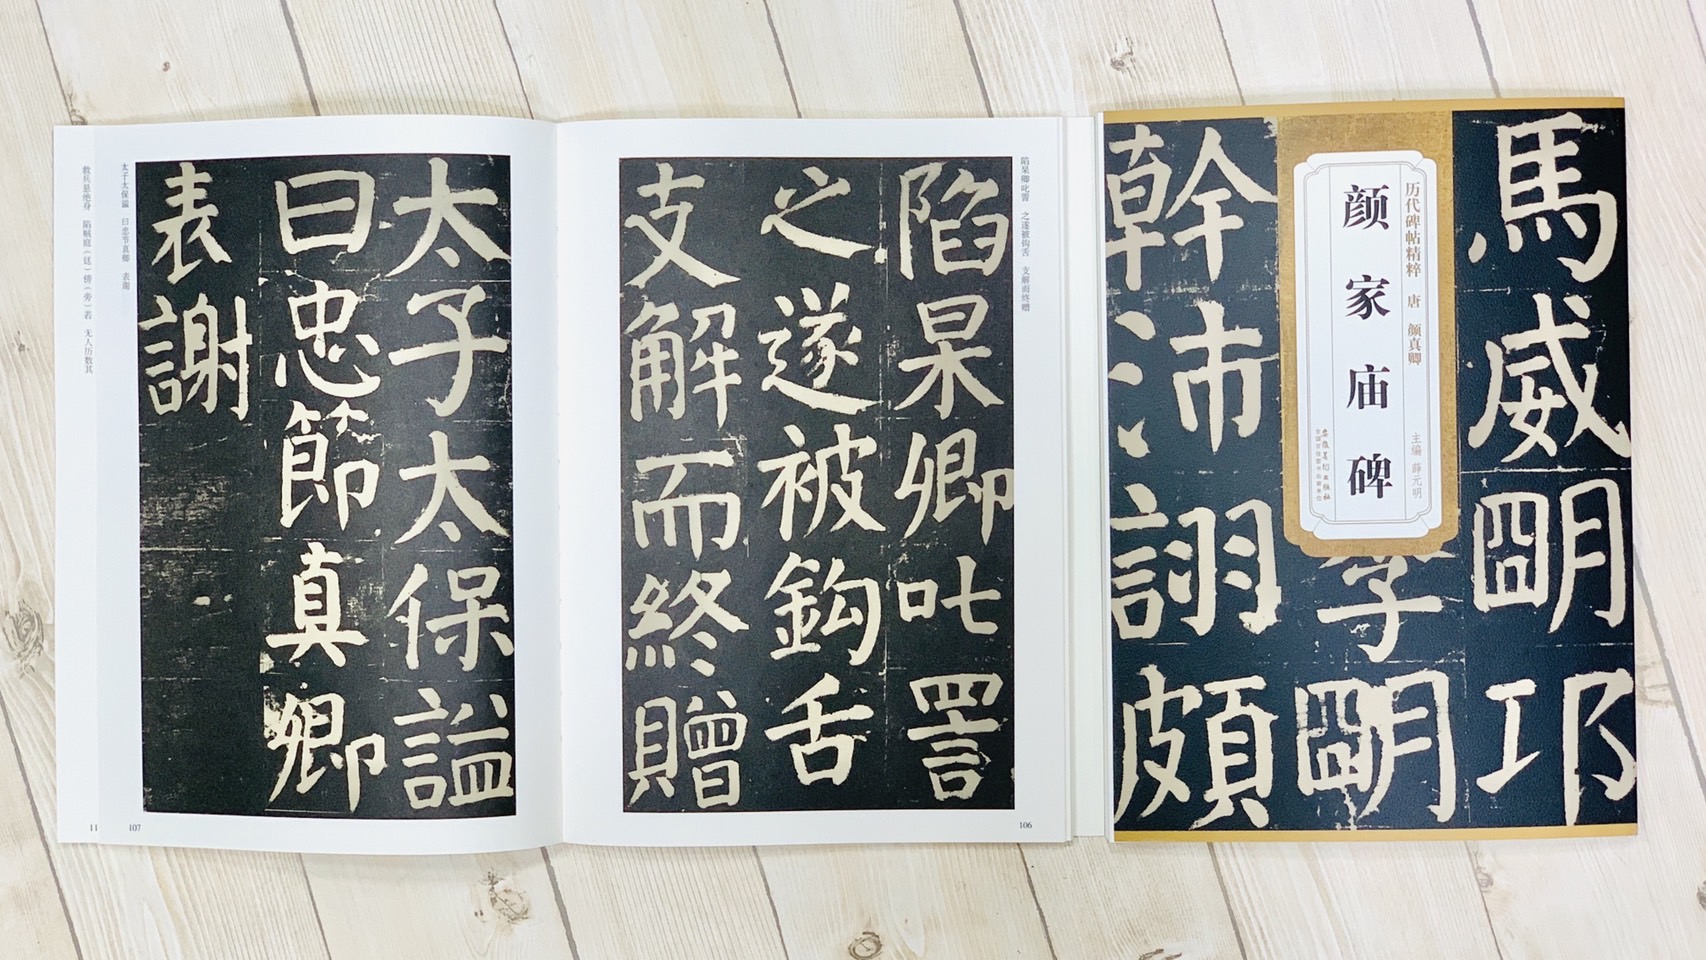 馬威朙邛
历代碑帖精粹 唐 颜真卿
主编 薛元明
颜家庙碑
安徽美术出版社
朙
幹沛詡頗
陷杲卿叱詈 之遂被钩舌 支解而终赠
陷杲卿叱詈
之遂被鈎舌
支解而終贈
106
太子太保謚
曰忠節真卿
表謝
太子太保谥 曰忠节真卿 表谢
107
陷贼庭（廷）傍（旁）若 无人历数其
11